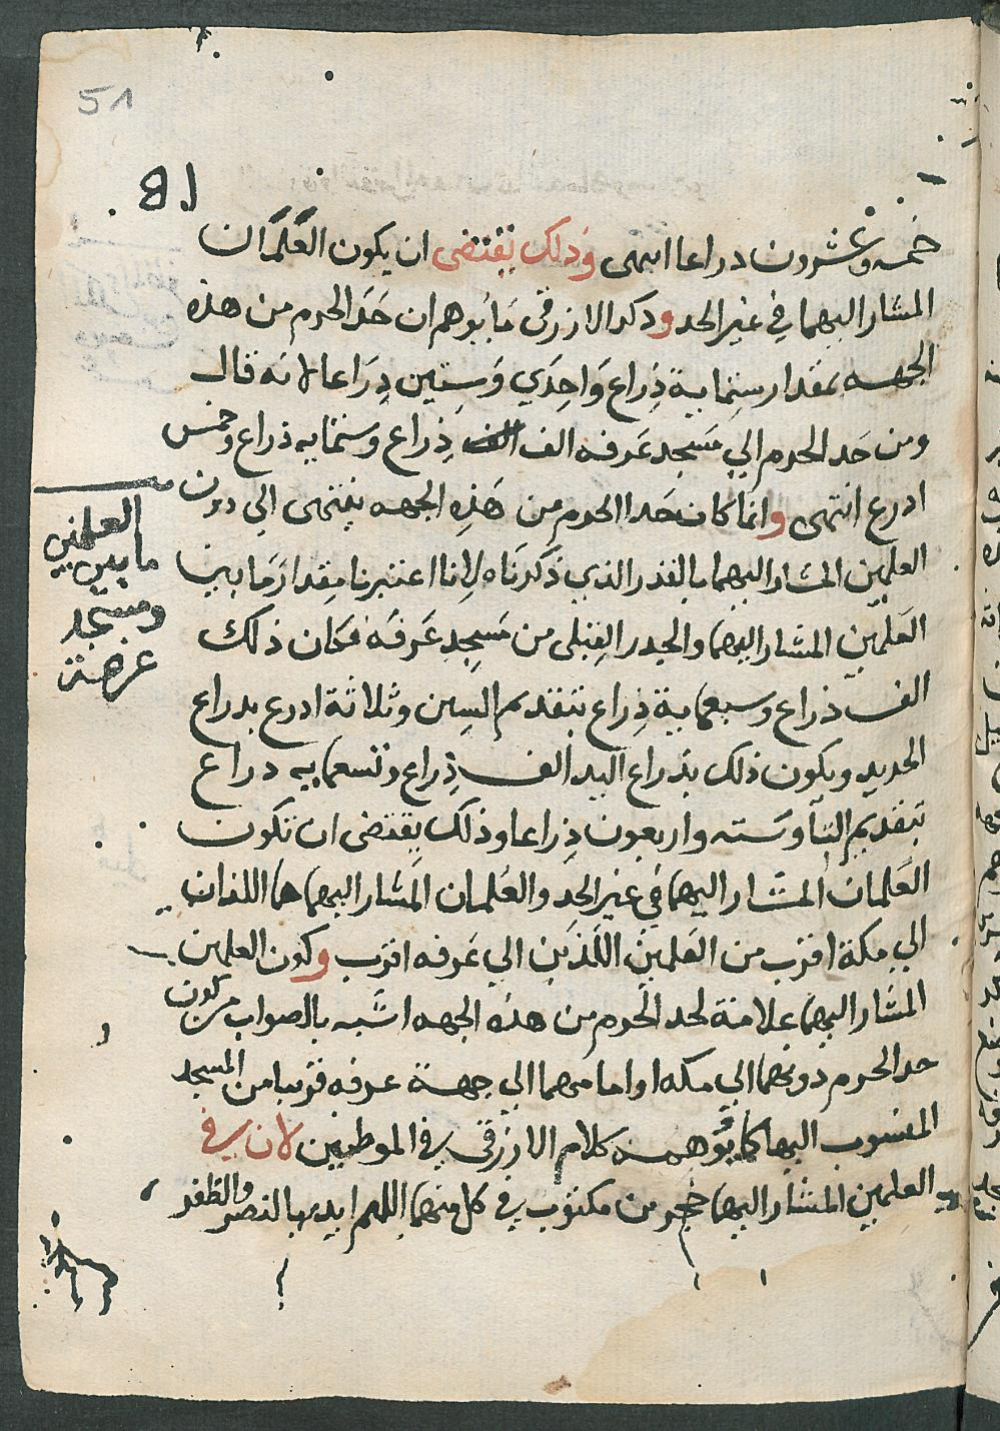 51
خمسه وعشرون دراعا انتهى وذلك يقتضى ان يكون العلمان
المشار اليهما في غير الحد وذكر الازرقى مايوهم ان حد الحرم من هذه
الجهه بمقدار ستماية ذراع واحدي وستين ذراعا لانه قال
ومن حد الحرم الي مسجد عرفه الف ذراع وستمايه ذراع وخمس
ادرع انتهى وانما كان حد الحرم من هذه الجهه ينتهى الي دون
العلمين المشار اليهما بالقدر الذي ذكرناه لاننا اعتبرنا مقدار ما بين
العلمين المشار اليهما والجدر القبلى من مسجد عرفه فكان ذلك
الف ذراع وسبعماية ذراع بتقديم السين وثلاثة ادرع بدراع
الحديد ويكون ذلك بذراع اليد الف ذراع وتسعمايه دراع
بتقديم التا وسته واربعون ذراعا وذلك يقتضى ان تكون
العلمان المشار اليهما في غير الحد والعلمان المشار اليهما هما اللذان
الي مكة اقرب من العلمين اللذين الي عرفه اقرب وكون العلمين
المشار اليهما علامة لحد الحرم من هذه الجهه اشبه بالصواب من كون
حد الحرم دونهما الي مكه او امامهما الي جهة عرفه قريبا من المسجد
المنسوب اليها كما يوهمه كلام الازرقى في الموطنين لان في
العلمين المشار اليهما حجر من مكتوب في كل منهما اللهم ايد بالنصر والظفر
العلمين
ما بين
ومسجد
عرفة